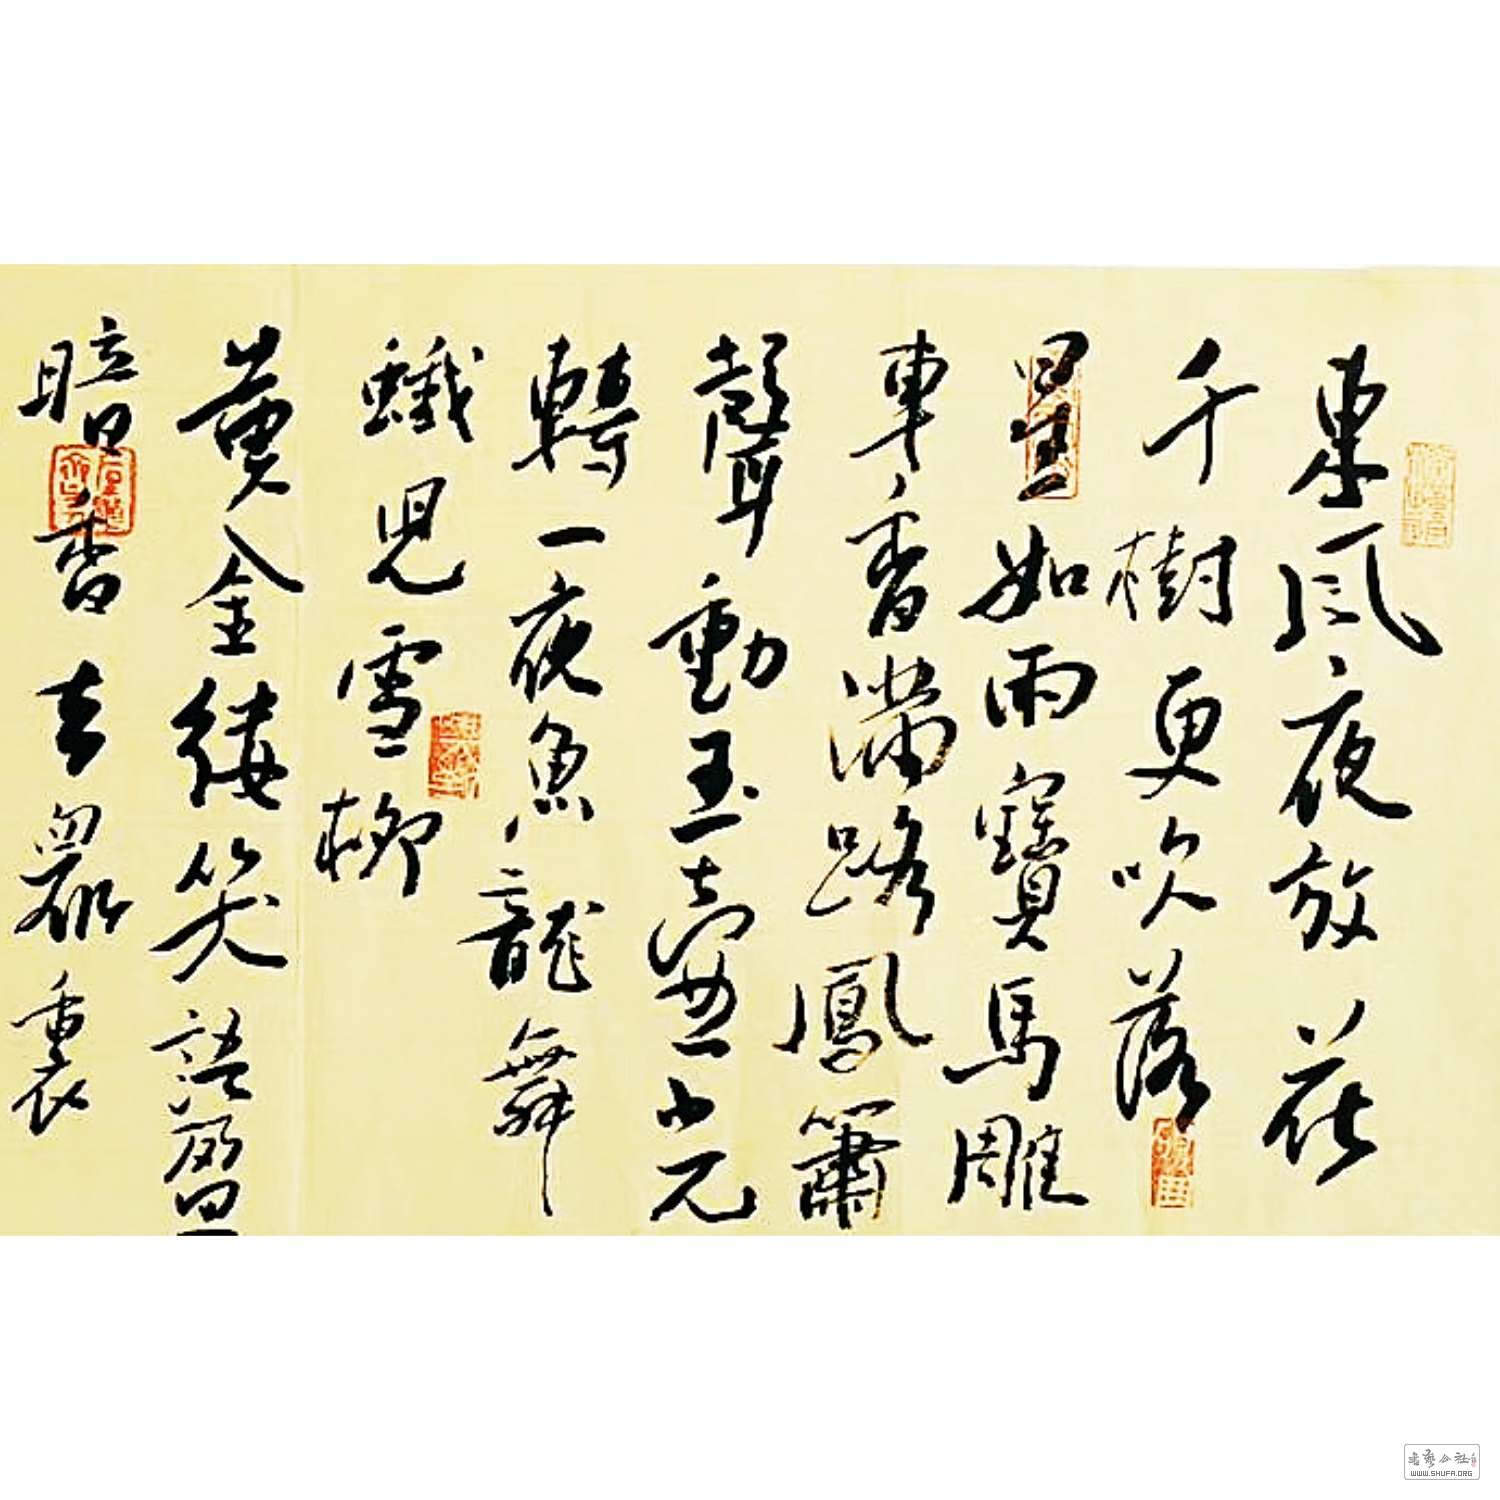 東風夜放花
千樹更吹落
星如雨寶馬雕
車香滿路鳳簫
聲動玉壺光
轉一夜魚龍舞
蛾兒雪柳
黃金縷笑語盈
暗香去眾裏
WWW.SHUFA.ORG